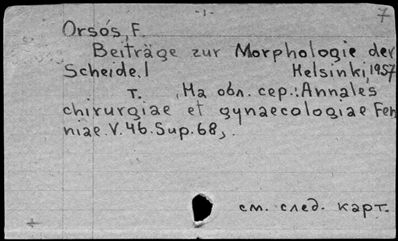 -1-
7
Orsós, F.
Beiträge zur Morphologie der
Scheide.1 Helsinki, 1957
т. На обл. сер.: Annales
chirurgiae et gynaecologiae Fen
niae. V. 46. Sup. 68,.
см. след. карт.